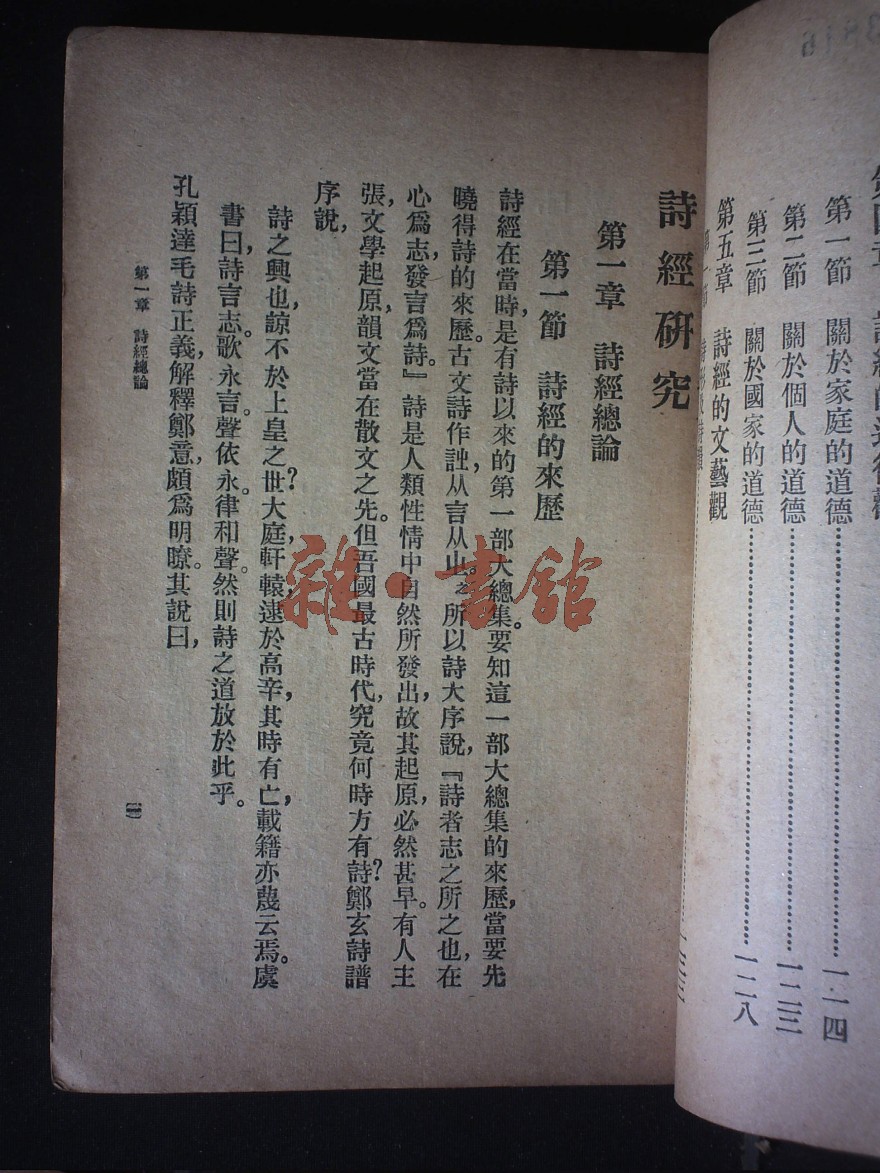 第四章 詩經的道德觀
第一節 關於家庭的道德……一一四
第二節 關於個人的道德……一二三
第三節 關於國家的道德……一二八
第五章 詩經的文藝觀
第一節
詩經研究
第一章 詩經總論
第一節 詩經的來歷
詩經在當時,是有詩以來的第一部大總集。要知這一部大總集的來歷,當要先
曉得詩的來歷。古文詩作訨,从言从㞢。之所以詩大序說,『詩者志之所之也,在
心爲志,發言爲詩。』詩是人類性情中自然所發出,故其起原,必然甚早。有人主
張,文學起原,韻文當在散文之先。但吾國最古時代,究竟何時方有詩?鄭玄詩譜
序說,
詩之興也,諒不於上皇之世?大庭,軒轅,逮於高辛,其時有亡,載籍亦蔑云焉。虞
書曰,詩言志。歌永言。聲依永。律和聲。然則詩之道放於此乎。
孔穎達毛詩正義,解釋鄭意,頗爲明暸。其說曰,
第一章 詩經總論
【一】
雜·書館